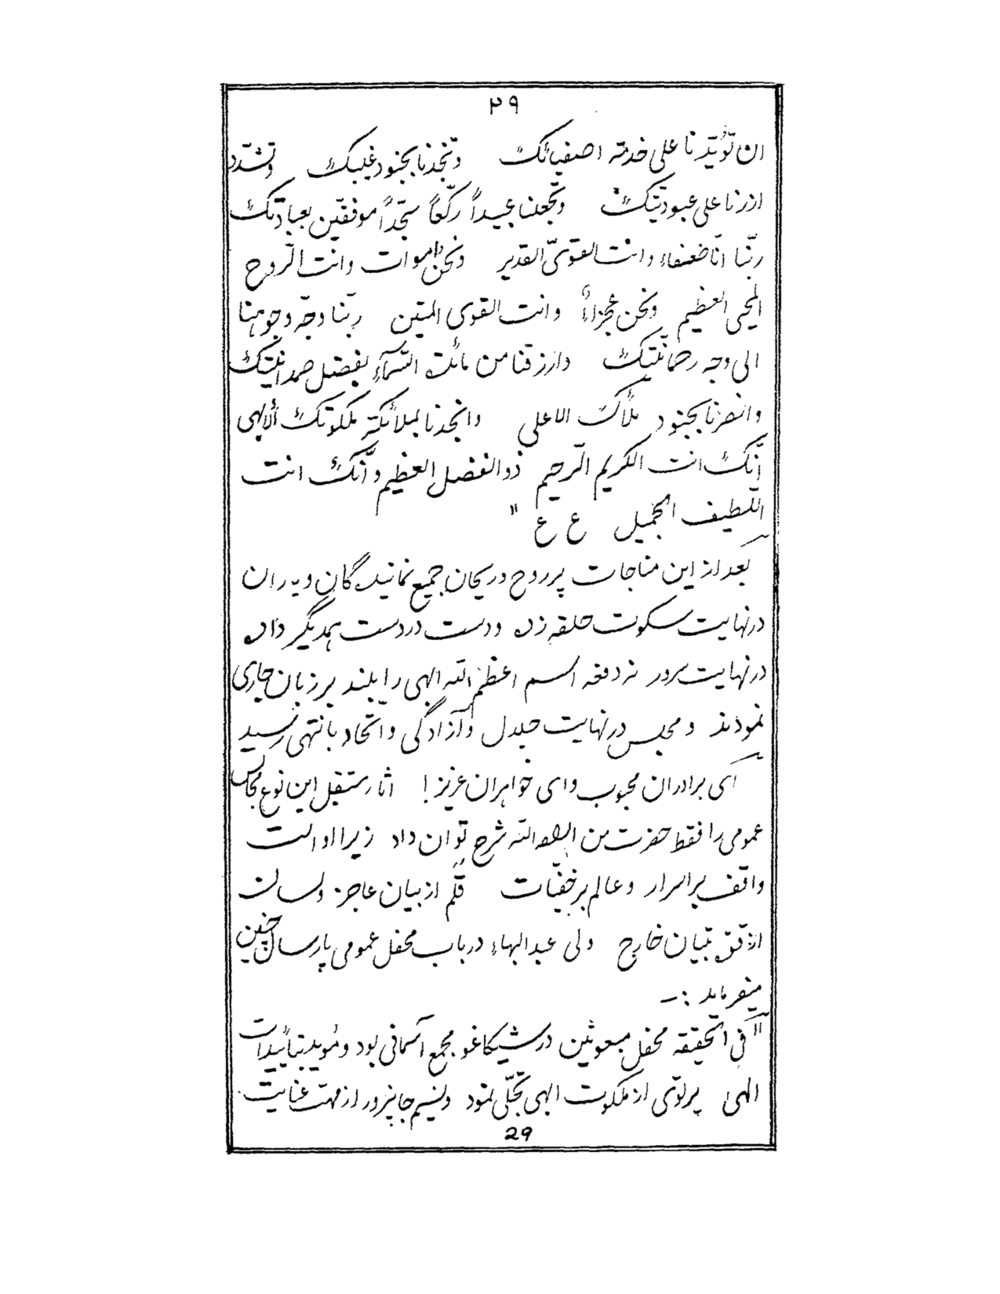 ۲۹
ان تؤیّدنا علی خدمة اصفیائک وتنجدنا بجنود غیبک وتشدّد
ازرنا علی عبودیّتک وتجعلنا عبیداً رکّعاً سجّداً موفقین بعبادتک
ربّنا انّا ضعفاء وانت القویّ القدیر ونحن اموات وانت الرّوح
المحیی العظیم ونحن عجزاء وانت القوی المتین ربّنا وجّه وجوهنا
الی وجه رحمانیّتک وارزقنا من مائدة السّمآء بفضل صمدانیّتک
وانصرنا بجنود ملأک الاعلی وانجدنا بملائکة ملکوتک الأبهی
انّک انت الکریم الرّحیم ذو الفضل العظیم وانّک انت
اللّطیف الجمیل ع ع "
بعد از این مناجات پر روح وریحان جمیع نمایندگان و یاران
در نهایت سکوت حلقه زده ودست در دست همدیگر داده
در نهایت سرور نه دفعه اسم اعظم الله ابهی را بلند بر زبان جاری
نمودند و مجلس در نهایت جلال وآزادگی واتّحاد بانتهی رسید
ای برادران محبوب وای خواهران عزیز ! اثار مستقبل این نوع مجالس
عمومی را فقط حضرت من اراده الله شرح توان داد زیرا او است
واقف بر اسرار وعالم بر خفیّات قلم از بیان عاجز ولسان
از تبیان خارج ولی عبدالبهاء در باب محفل عمومی پارسال چنین
میفرماید :ــ
" فی الحقیقه محفل مبعوثین در شیکاغو مجمع آسمانی بود ومؤید بتأییدات
الهی پرتوی از ملکوت ابهی تجلّی نمود ونسیم جانپرور از مهبّ عنایت
29